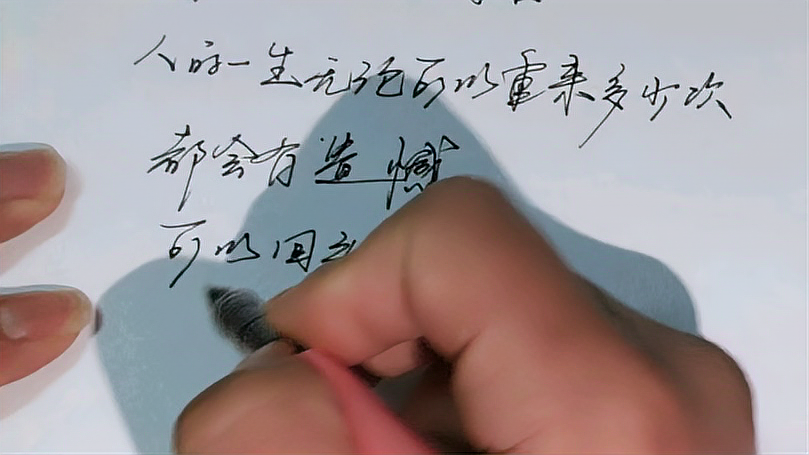 人的一生无论可以重来多少次
都会有遗憾
可以回